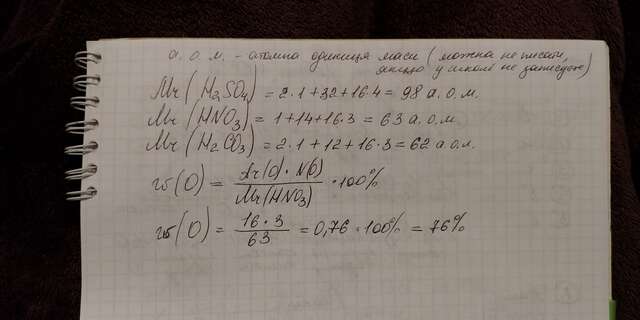 а. о. м. - атомна одиниця маси (можна не писати,
якщо у школі не записуєте)
Mr(H₂SO₄) = 2·1+32+16·4 = 98 а.о.м.
Mr(HNO₃) = 1+14+16·3 = 63 а.о.м.
Mr(H₂CO₃) = 2·1+12+16·3 = 62 а.о.м.
w(O) = Ar(O)·N(O) / Mr(HNO₃) · 100%
w(O) = 16·3 / 63 = 0,76 · 100% = 76%